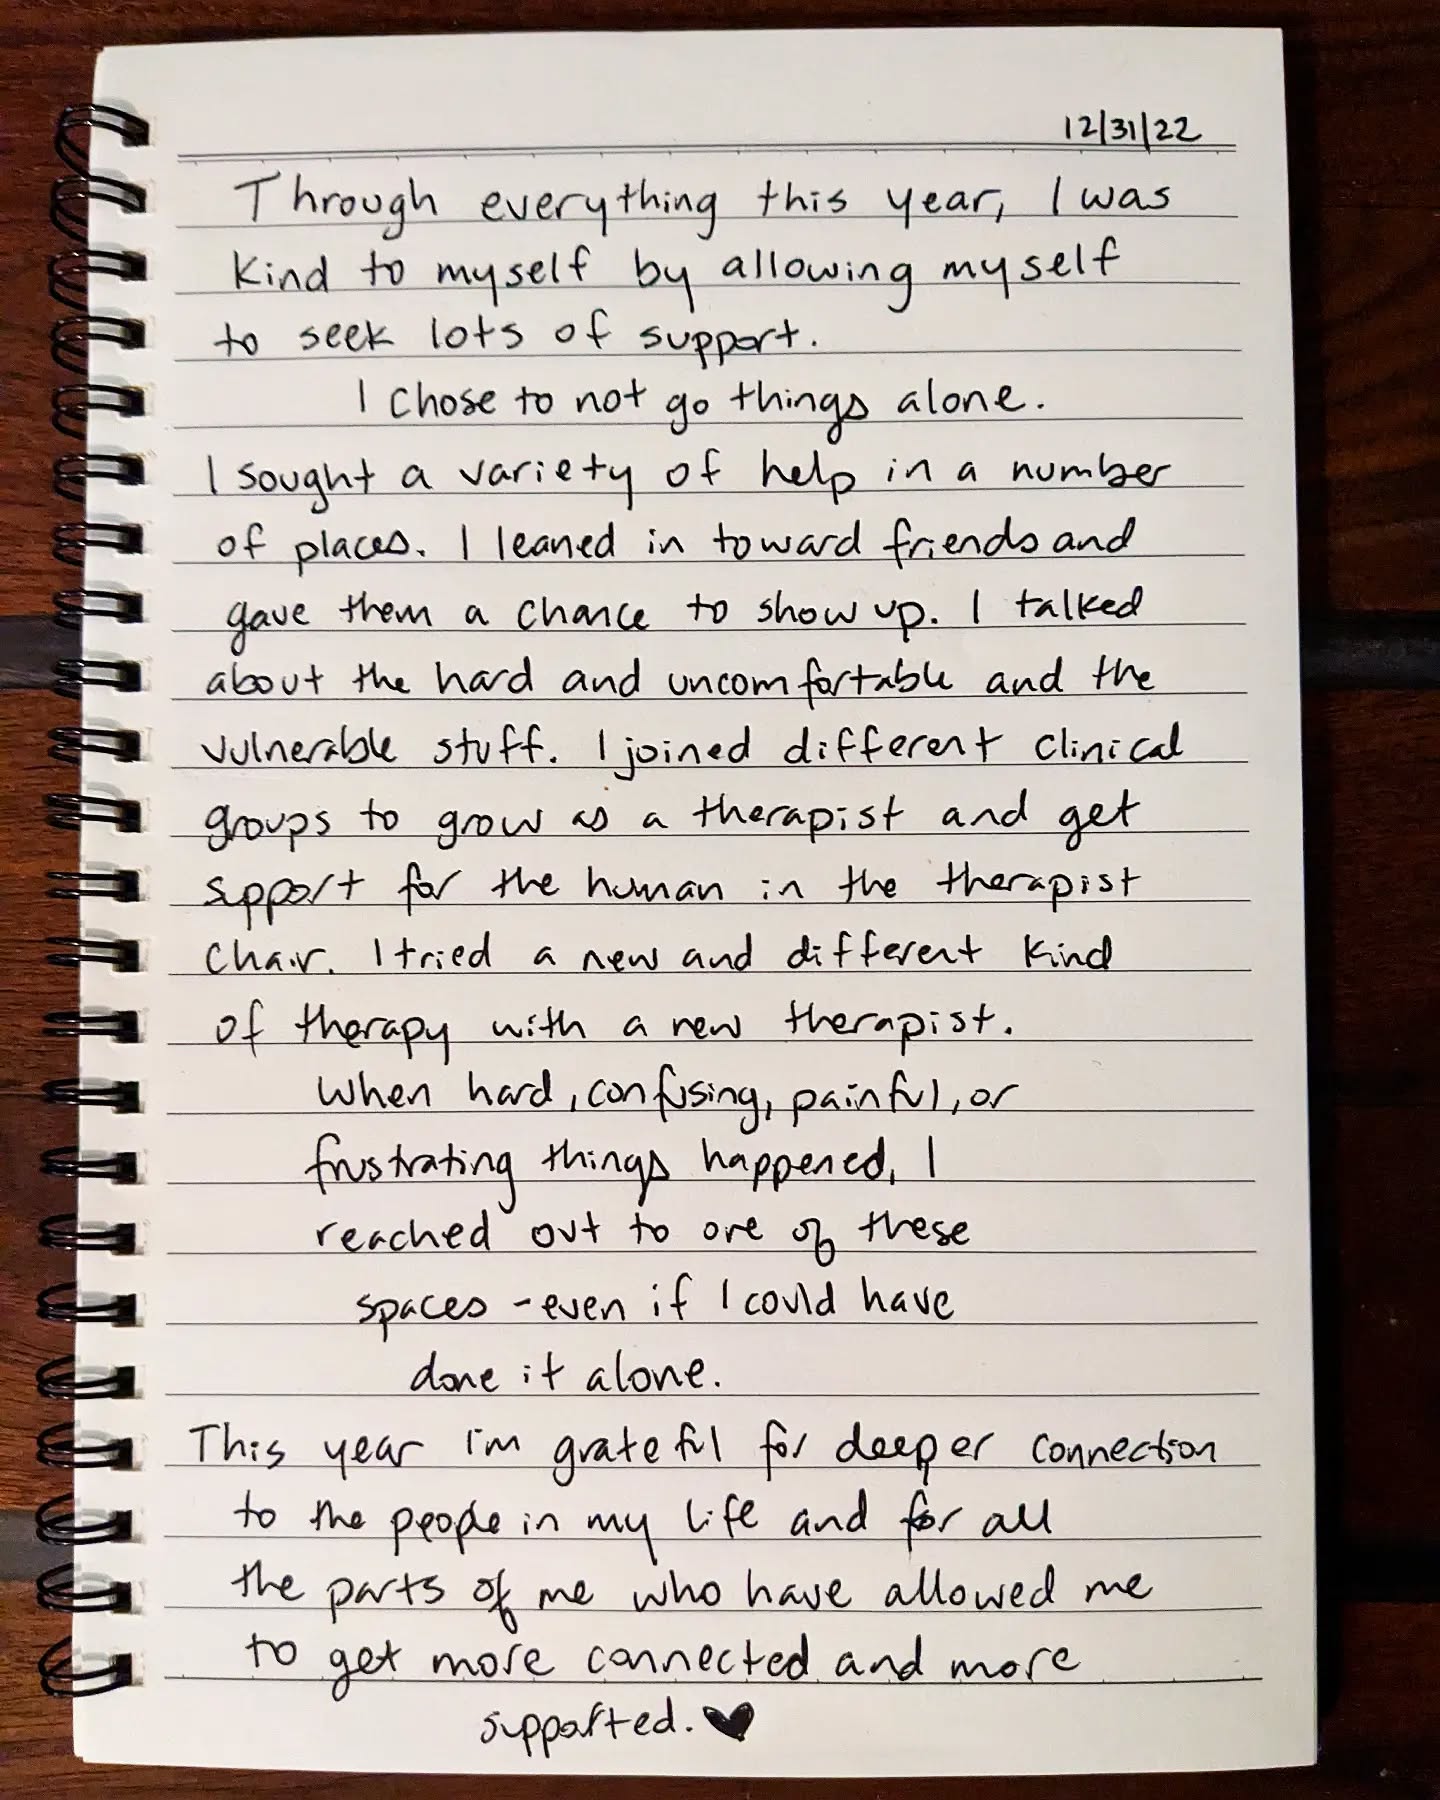 12/31/22
Through everything this year, I was
kind to myself by allowing myself
to seek lots of support.
I chose to not go things alone.
I sought a variety of help in a number
of places. I leaned in toward friends and
gave them a chance to show up. I talked
about the hard and uncomfortable and the
vulnerable stuff. I joined different clinical
groups to grow as a therapist and get
support for the human in the therapist
chair. I tried a new and different kind
of therapy with a new therapist.
When hard, confusing, painful, or
frustrating things happened, I
reached out to one of these
spaces - even if I could have
done it alone.
This year I'm grateful for deeper connection
to the people in my life and for all
the parts of me who have allowed me
to get more connected and more
supported. ♥